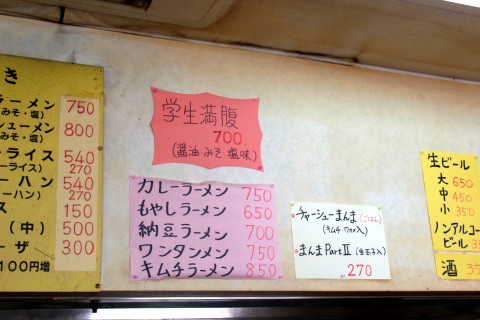 き
ラーメン 750
みそ・塩)
シューメン 800
みそ・塩)
ライス 540
ーライス) 270
ハン 540
ーハン) 270
ス 150
(中) 500
ーザ 300
100円増
学生満腹
700
(醤油 みそ 塩味)
カレーラーメン 750
もやしラーメン 650
納豆ラーメン 700
ワンタンメン 750
キムチラーメン 850
チャーシューまんま(ごはん)
(キムチ・ワカメ入)
まんまPartⅡ (生玉子入)
270
生ビール
大 650
中 450
小 350
ノンアルコー
ビール 35
酒 35